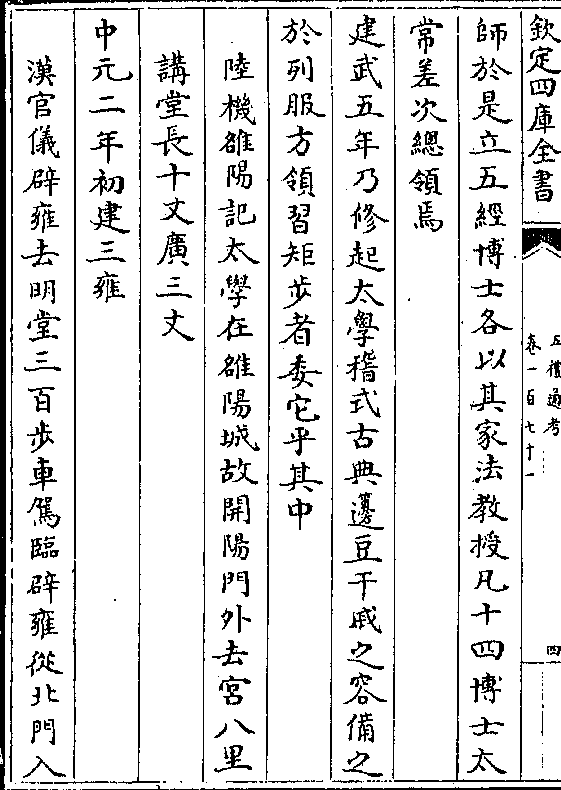 欽定四庫全書
五禮通考
卷一百七十一
四
師於是立五經博士各以其家法教授凡十四博士太
常差次總領焉
建武五年乃修起太學稽式古典籩豆干戚之容備之
於列服方領習矩步者委它乎其中
陸機雒陽記太學在雒陽城故開陽門外去宮八里
講堂長十丈廣三丈
中元二年初建三雍
漢官儀辟雍去明堂三百步車駕臨辟雍從北門入